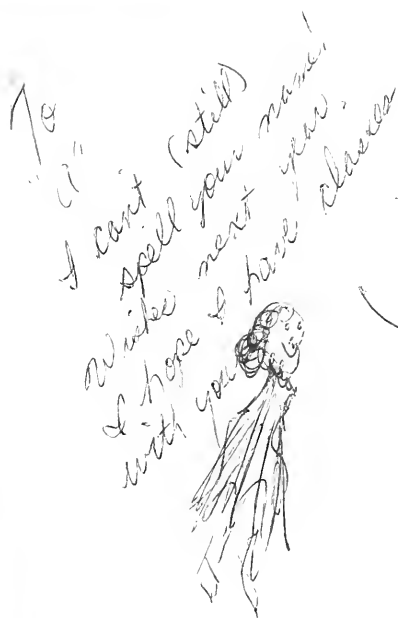 To
"A"
I can't (still)
spell your name!
next year.
I hope I have classes
with you